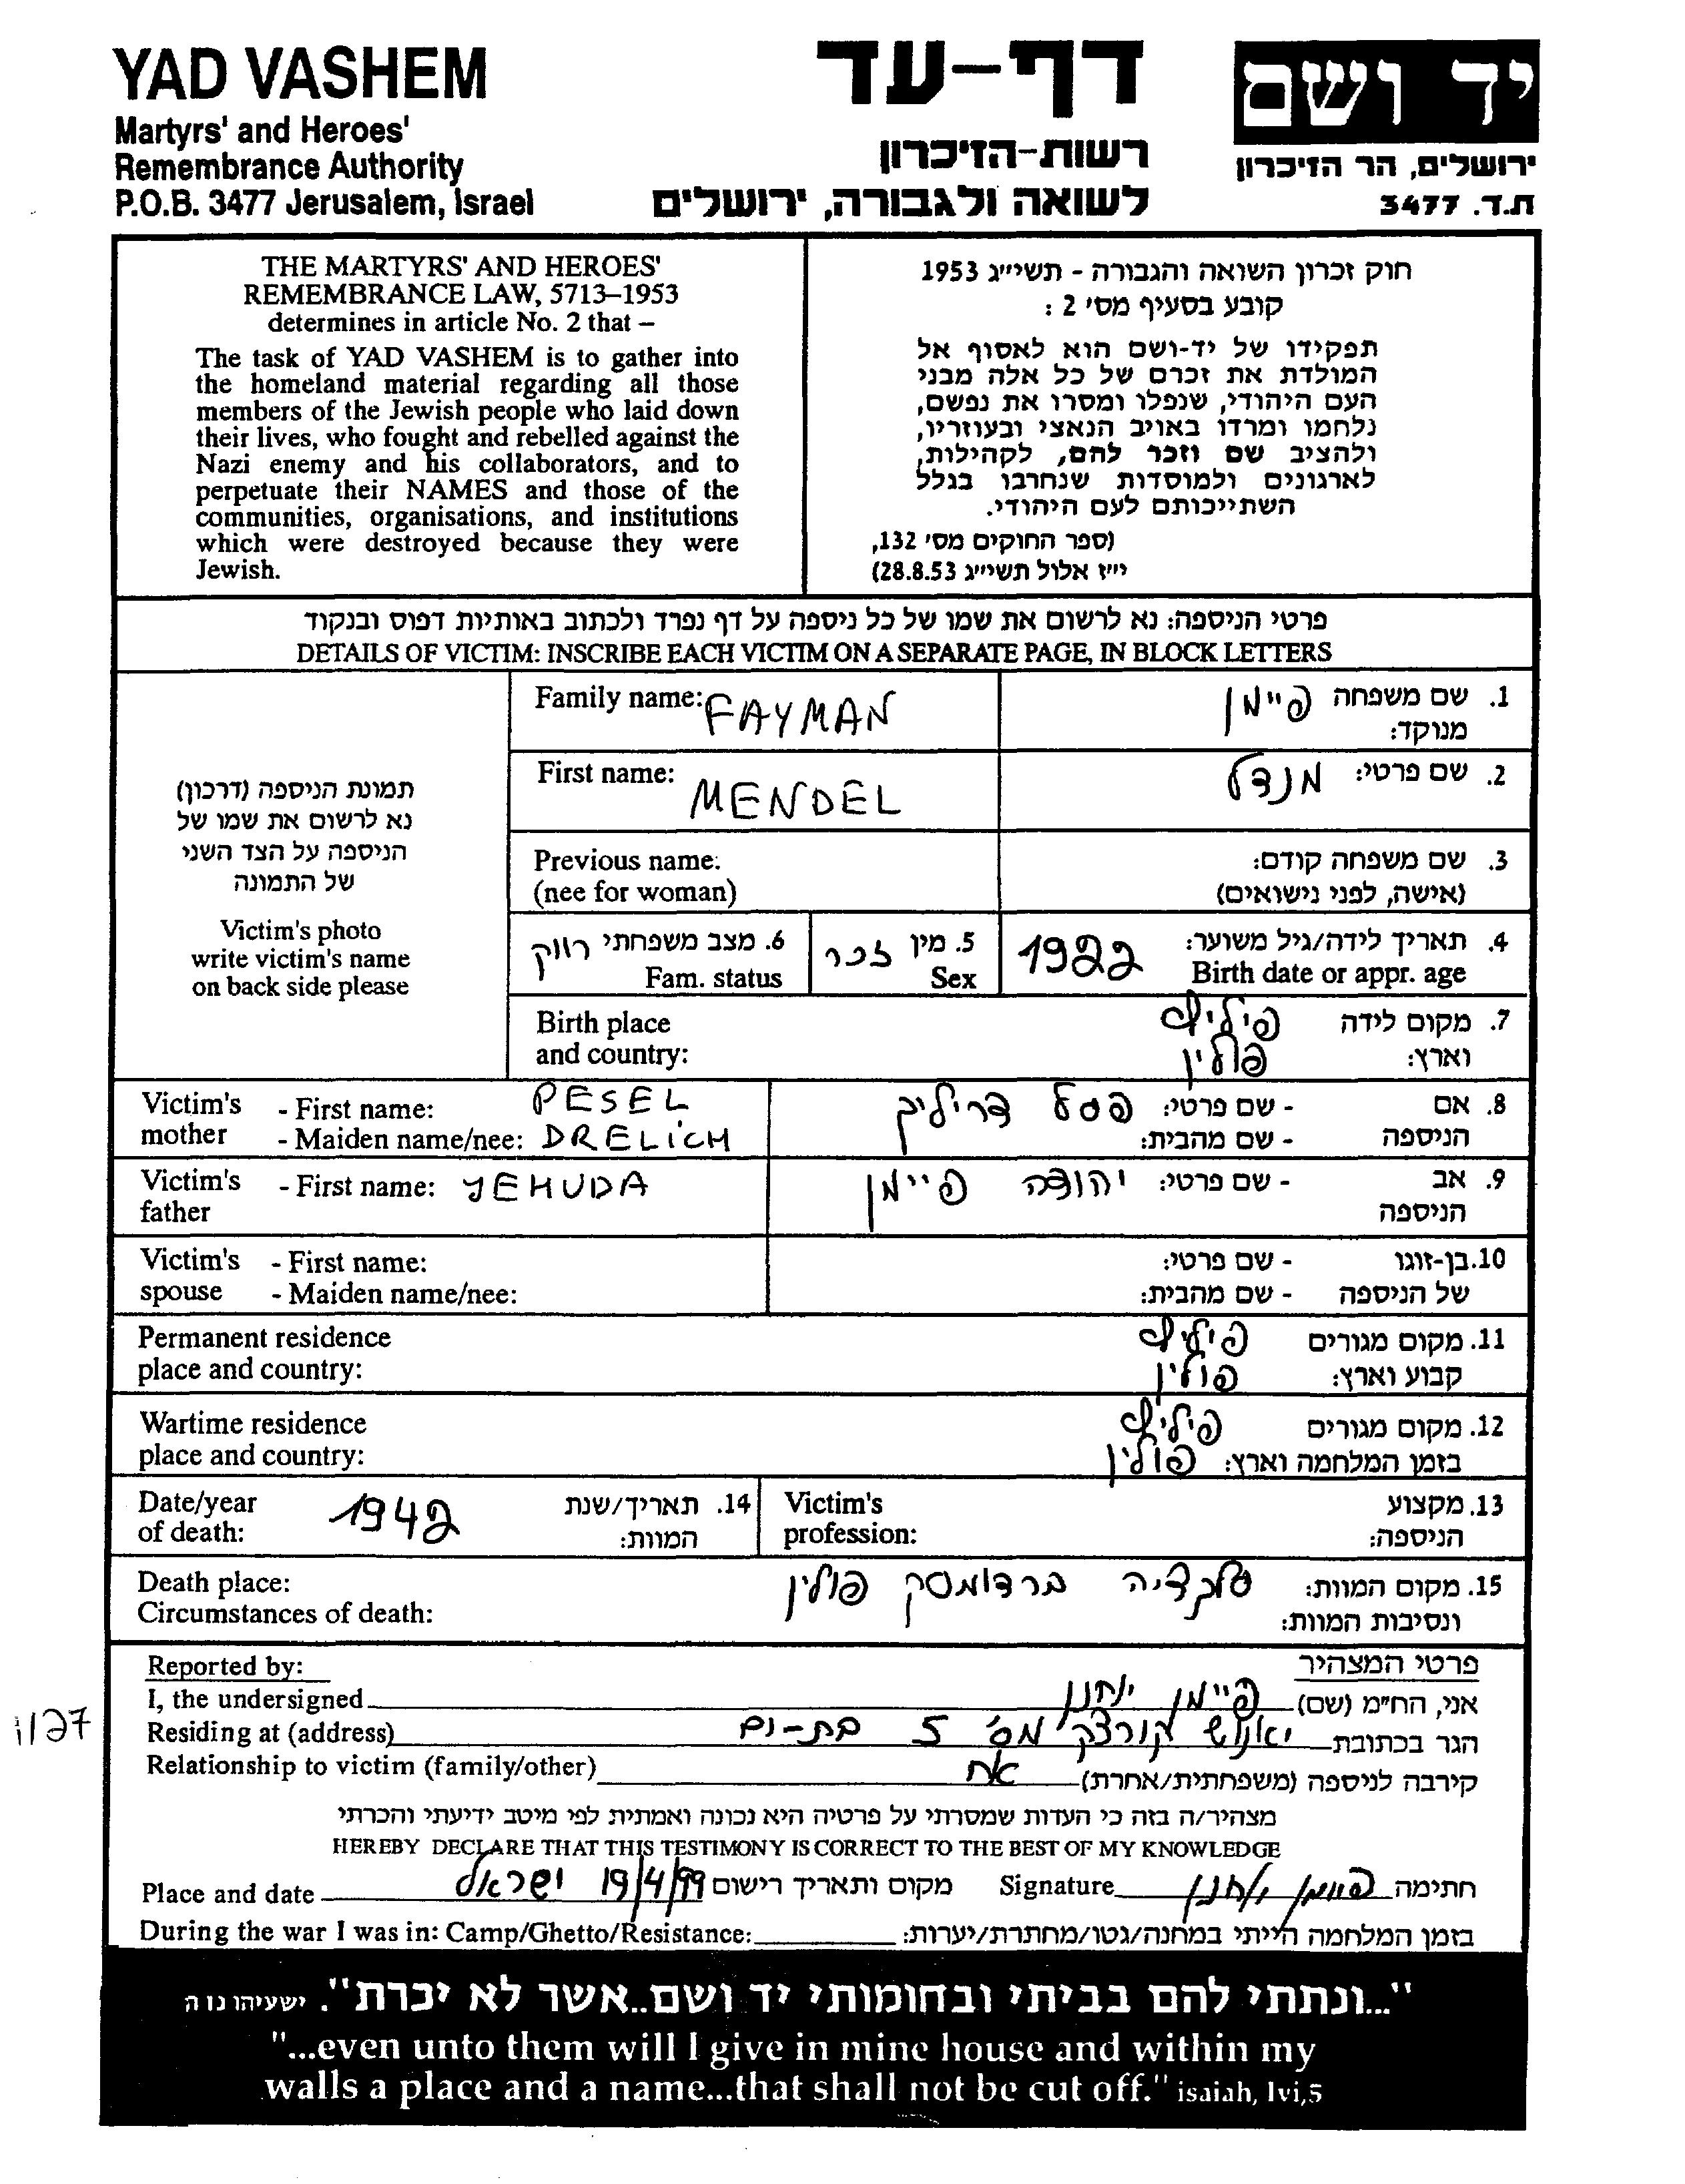 YAD VASHEM
Martyrs' and Heroes'
Remembrance Authority
P.O.B. 3477 Jerusalem, Israel
דף-עד
רשות-הזיכרון
לשואה ולגבורה, ירושלים
יד ושם
ירושלים, הר הזיכרון
ת.ד. 3477
THE MARTYRS' AND HEROES'
REMEMBRANCE LAW, 5713–1953
determines in article No. 2 that –
The task of YAD VASHEM is to gather into
the homeland material regarding all those
members of the Jewish people who laid down
their lives, who fought and rebelled against the
Nazi enemy and his collaborators, and to
perpetuate their NAMES and those of the
communities, organisations, and institutions
which were destroyed because they were
Jewish.
חוק זכרון השואה והגבורה - תשי״ג 1953
קובע בסעיף מס' 2 :
תפקידו של יד-ושם הוא לאסוף אל
המולדת את זכרם של כל אלה מבני
העם היהודי, שנפלו ומסרו את נפשם,
נלחמו ומרדו באויב הנאצי ובעוזריו,
ולהציב שם וזכר להם, לקהילות,
לארגונים ולמוסדות שנחרבו בגלל
השתייכותם לעם היהודי.
(ספר החוקים מס' 132,
י״ז אלול תשי״ג 28.8.53)
פרטי הניספה: נא לרשום את שמו של כל ניספה על דף נפרד ולכתוב באותיות דפוס ובנקוד
DETAILS OF VICTIM: INSCRIBE EACH VICTIM ON A SEPARATE PAGE, IN BLOCK LETTERS
תמונת הניספה (דרכון)
נא לרשום את שמו של
הניספה על הצד השני
של התמונה
Victim's photo
write victim's name
on back side please
Family name: FAYMAN
1. שם משפחה פיימן
מנוקד:
First name: MENDEL
2. שם פרטי: מנדל
Previous name:
(nee for woman)
3. שם משפחה קודם:
(אישה, לפני נישואים)
4. תאריך לידה/גיל משוער: 1922
Birth date or appr. age
5. מין זכר
Sex
6. מצב משפחתי רווק
Fam. status
Birth place
and country:
7. מקום לידה פיליץ
וארץ: פולין
Victim's - First name: PESEL
mother - Maiden name/nee: DRELICH
8. אם - שם פרטי: פסל דריליך
הניספה - שם מהבית:
Victim's - First name: JEHUDA
father
9. אב - שם פרטי: יהודה פיימן
הניספה
Victim's - First name:
spouse - Maiden name/nee:
10. בן-זוגו - שם פרטי:
של הניספה - שם מהבית:
Permanent residence
place and country:
11. מקום מגורים פיליץ
קבוע וארץ: פולין
Wartime residence
place and country:
12. מקום מגורים פיליץ
בזמן המלחמה וארץ: פולין
Date/year
of death: 1942
14. תאריך/שנת
המוות:
Victim's
profession:
13. מקצוע
הניספה:
Death place:
Circumstances of death:
15. מקום המוות: ברדומסק פולין
ונסיבות המוות:
Reported by:
I, the undersigned
Residing at (address)
Relationship to victim (family/other)
פרטי המצהיר
אני, הח״מ (שם) פיימן יוחנן
הגר בכתובת יאנוש קורצ'ק מס' 5 בת-ים
קירבה לניספה (משפחתית/אחרת) אח
מצהיר/ה בזה כי העדות שמסרתי על פרטיה היא נכונה ואמתית לפי מיטב ידיעתי והכרתי
HEREBY DECLARE THAT THIS TESTIMONY IS CORRECT TO THE BEST OF MY KNOWLEDGE
Place and date
מקום ותאריך רישום 19/4/99 ישראל
Signature
חתימה פיימן יוחנן
During the war I was in: Camp/Ghetto/Resistance:
בזמן המלחמה הייתי במחנה/גטו/מחתרת/יערות:
"...ונתתי להם בביתי ובחומותי יד ושם..אשר לא יכרת". ישעיהו נו ה
"...even unto them will I give in mine house and within my
walls a place and a name...that shall not be cut off." isaiah, lvi,5